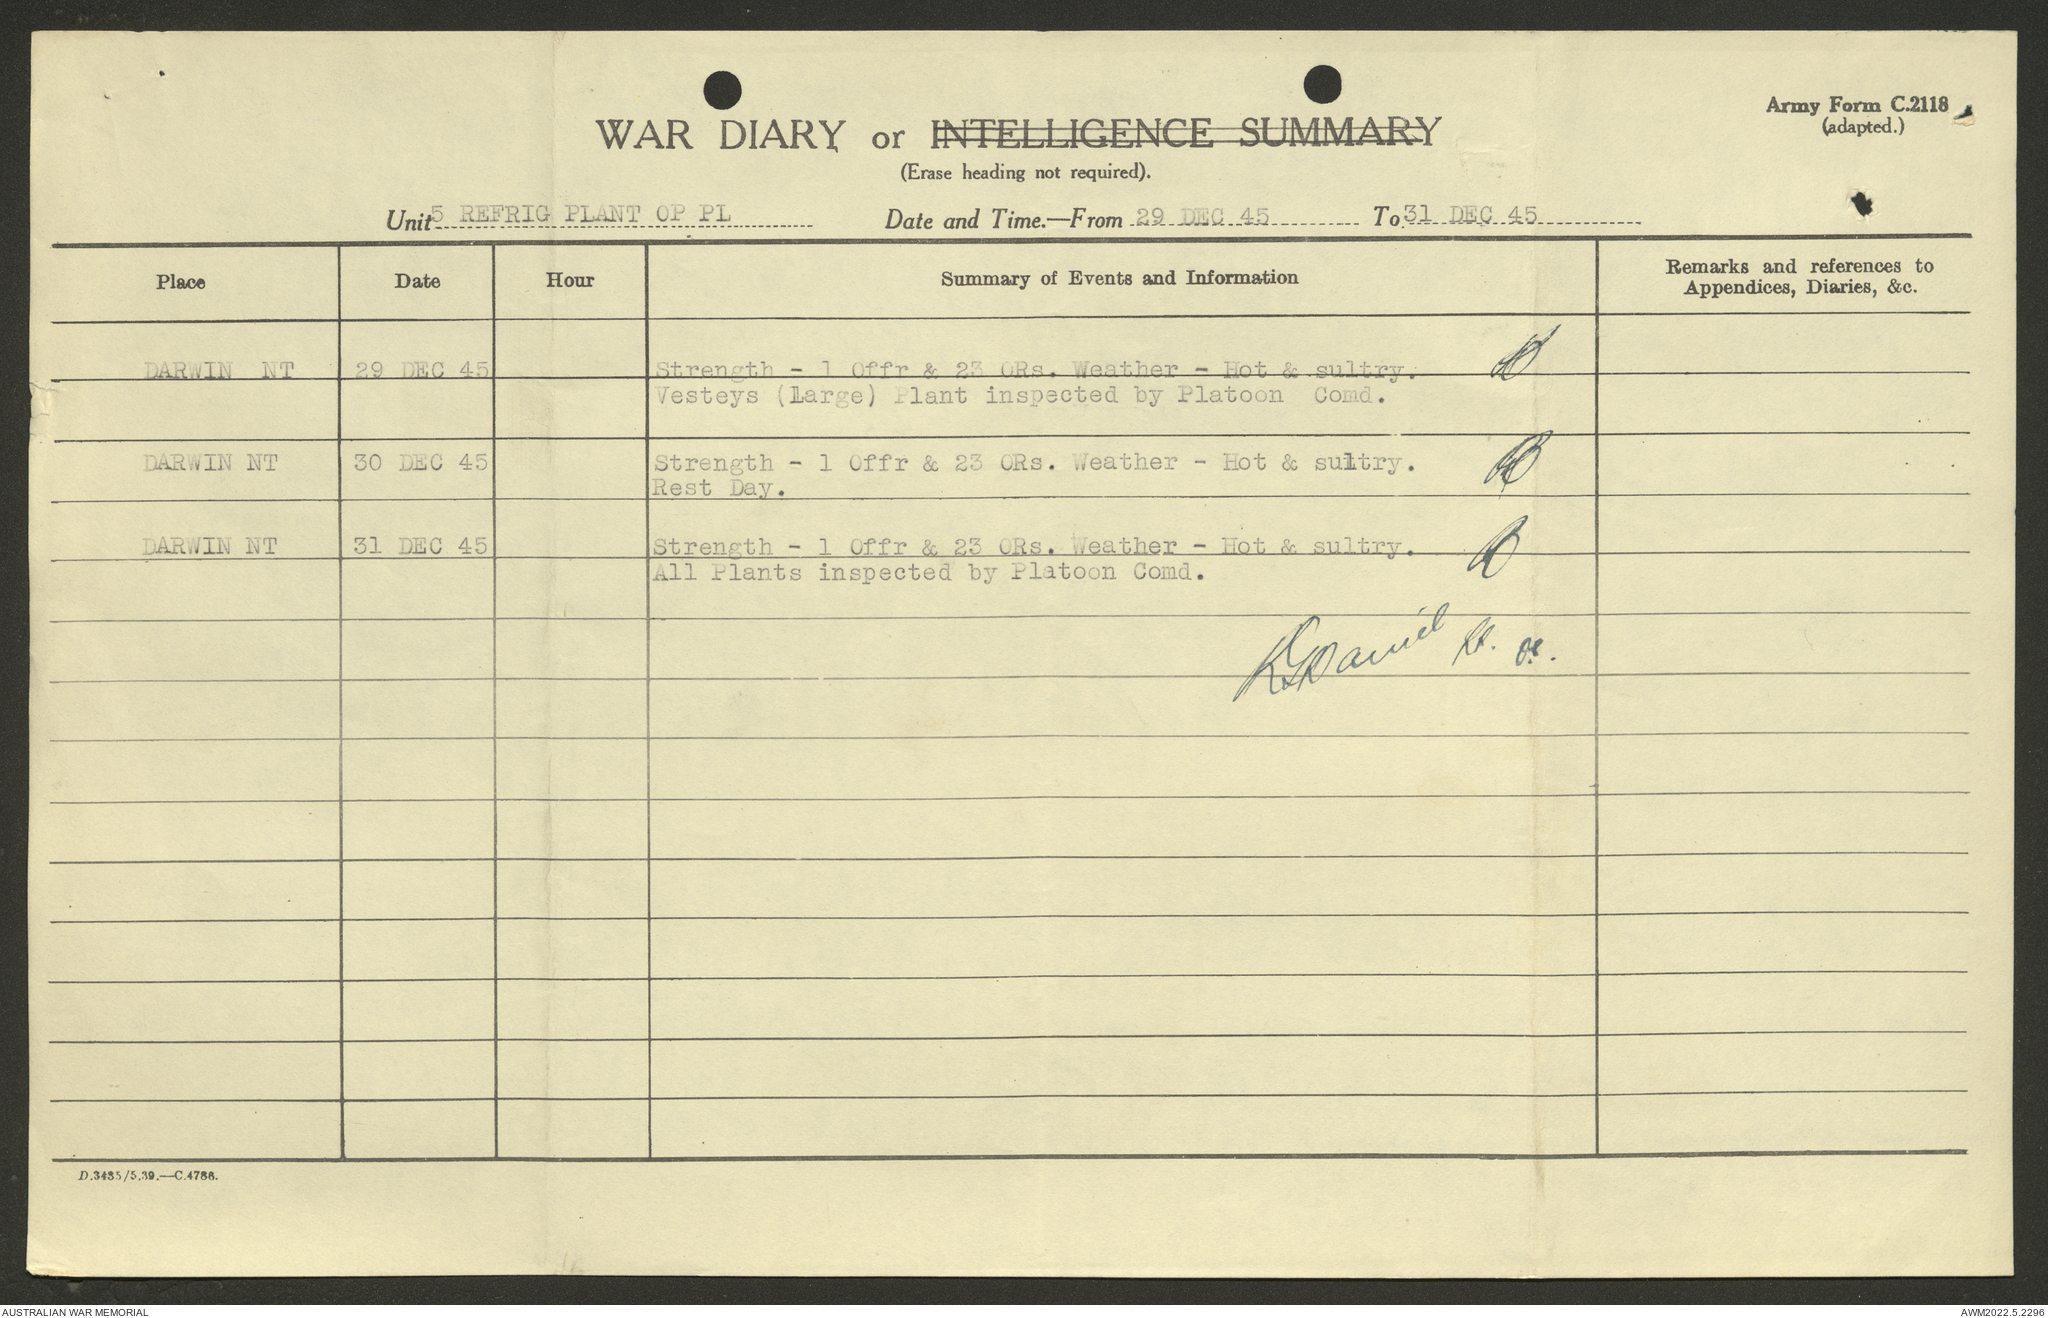 Army Form C.2118
(adapted.)
WAR DIARY or INTELLIGENCE SUMMARY
(Erase heading not required).
Unit 5 REFRIG PLANT OP PL Date and Time.—From 29 DEC 45 To 31 DEC 45
Place Date Hour Summary of Events and Information Remarks and references to
Appendices, Diaries, &c.
DARWIN NT 29 DEC 45 Strength - 1 Offr & 23 ORs. Weather - Hot & sultry.
Vesteys (Large) Plant inspected by Platoon Comd.
DARWIN NT 30 DEC 45 Strength - 1 Offr & 23 ORs. Weather - Hot & sultry.
Rest Day.
DARWIN NT 31 DEC 45 Strength - 1 Offr & 23 ORs. Weather - Hot & sultry.
All Plants inspected by Platoon Comd.
Daniel Lt. OC.
D.3485/5.39.—C.4788.
AUSTRALIAN WAR MEMORIAL AWM2022.5.2296